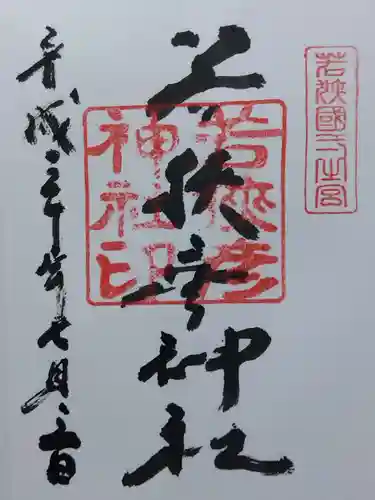 若狹國一之宮
若狭彦神社
若狭彦
神社印
平成三十年七月二日